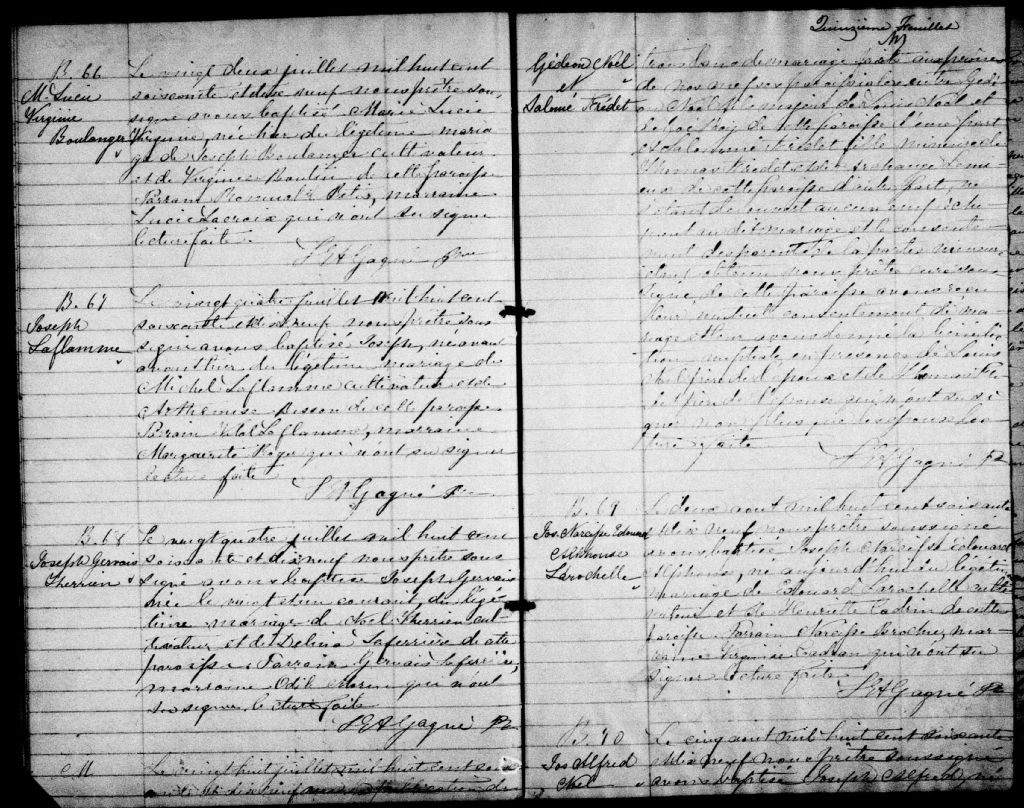 B. 66
M. Lucie
Virginie
Boulanger
Le vingt deux juillet mil huit cent
soixante et dix neuf nous prêtre sous
signé avons baptisé Marie Lucie
Virginie, née hier du légitime maria
ge de Joseph Boulanger cultivateur
et de Virginie Boutin de cette paroisse
Parrain marraine
Lucie Lacroix qui n'ont su signer
lecture faite.
Gagné Ptre
B. 67
Joseph
Laflamme
Le vingt quatre juillet mil huit cent
soixante et dix neuf nous prêtre sous
signé avons baptisé Joseph, né avant
avant hier du légitime mariage de
Michel Laflamme cultivateur et de
Arthémise Bisson de cette paroisse
Parrain Vital Laflamme, marraine
Marguerite Roger qui n'ont su signer
lecture faite
Gagné Ptre
B. 68
Joseph Gervais
Therrien
Le vingt quatre juillet mil huit cent
soixante et dix neuf nous prêtre sous
signé avons baptisé Joseph Gervais
née le vingt et un courant, du légi-
time mariage de Noël Therrien cul-
tivateur et de Délina Laferrière de cette
paroisse. Parrain Gervais Laferrière,
marraine Odile Morin qui n'ont
su signer, lecture faite
Gagné Ptre
M
Le vingt huit juillet mil huit cent soix
ante et dix neuf publication de
Quinzième Feuillet
Gédéon Noël
et
Salomé Fradet
trois bans de mariage faite aux prônes
de nos messes paroissiales entre Gédé
on Noël fils majeur de Louis Noël et
de cette paroisse d'une part
et Salomé Fradet fille mineure de
Thomas Fradet et de Lemi-
eux de cette paroisse d'autre part, ne
s'étant découvert aucun empêche
ment au dit mariage et le consente
ment des parents de la partie mineure
nous prêtre curé sous-
signé, de cette paroisse avons reçu
leur mutuel consentement de ma-
riage et leur avons donné la bénédic
tion nuptiale en présence de Louis
Noël père de l'époux et de Thomas Fra
det père de l'épouse qui n'ont su si
gner non plus que les époux. Lec
ture faite
Gagné Ptre
B. 69
Jos. Narcisse Edouard
Alphonse
Larochelle
Le deux août mil huit cent soixante
et dix neuf nous prêtre soussigné
avons baptisé Joseph Narcisse Edouard
Alphonse, né aujourd'hui du légitime
mariage de Edouard Larochelle culti
vateur et de Henriette Cadrin de cette
paroisse Parrain Narcisse mar-
raine Virginie qui n'ont su
signer lecture faite
Gagné Ptre
B. 70
Jos Alfred
Noël
Le cinq août mil huit cent soixante
et dix neuf nous prêtre soussigné
avons baptisé Joseph Alfred, né